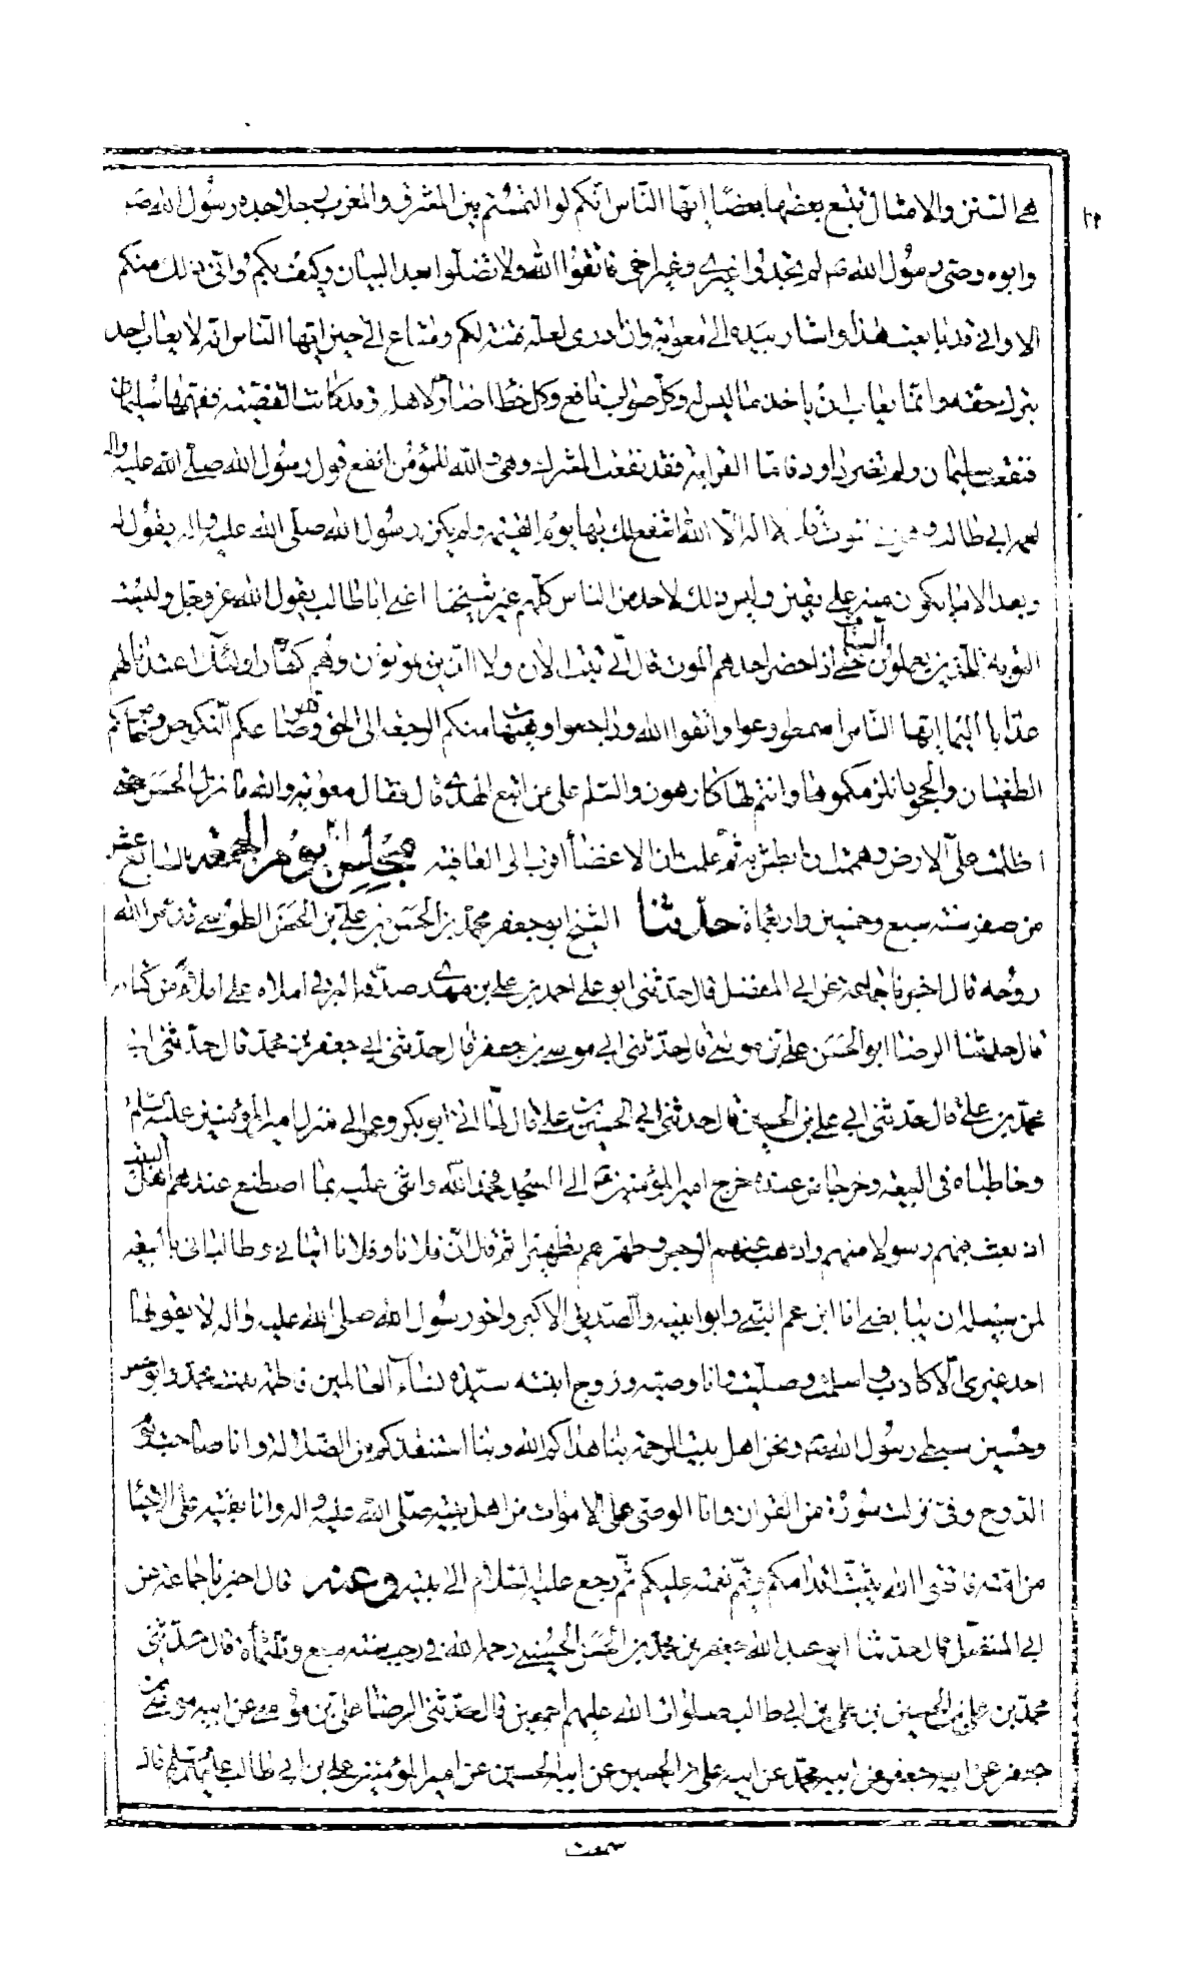 هي السنن والامثال تتبع بعضها بعضا ايها الناس انكم لو التمستم بين المشرق والمغرب رجلا جده رسول الله ص
وابوه وصي رسول الله ص لم تجدوا غيري وغير اخي فاتقوا الله ولا تضلوا بعد البيان وكيف بكم واني ذلك منكم
الا واني قد بايعت هذا واشار بيده الى معوية وان ادري لعله فتنة لكم ومتاع الى حين ايها الناس انه لا يعاب احد
بترك حقه وانما يعاب ان ياخذ ما ليس له وكل صواب نافع وكل خطا ضار لاهله وقد كانت القضية ففهمها سليمان
فنفعت سليمان ولم تضر داود فاما القرابة فقد نفعت المشرك وهي والله للمؤمن انفع قول رسول الله صلى الله عليه واله
لعمه ابي طالب وهو في الموت قل لا اله الا الله اشفع لك بها يوم القيمة ولم يكن رسول الله صلى الله عليه واله يقول له
ويعد الا ما يكون منه على يقين وليس ذلك لاحد من الناس كلهم غير شيخنا اعني ابا طالب يقول الله عز وجل وليست
التوبة للذين يعملون السيئات حتى اذا حضر احدهم الموت قال اني تبت الان ولا الذين يموتون وهم كفار اولئك اعتدنا لهم
عذابا اليما ايها الناس اسمعوا وعوا واتقوا الله وراجعوا وهيهات منكم الرجعة الى الحق وقد صارعكم النكوص وخامركم
الطغيان والجحود انلزمكموها وانتم لها كارهون والسلم على من اتبع الهدى قال فقال معوية والله ما نزل الحسن حتى
اظلمت علي الارض وهممت ان ابطش به ثم علمت ان الاغضاء اقرب الى العافية مجلس يوم الجمعة السابع عشر
من صفر سنة سبع وخمسين واربعمائة حدثنا الشيخ ابو جعفر محمد بن الحسن بن علي بن الحسن الطوسي قدس الله
روحه قال اخبرنا جماعة عن ابي المفضل قال حدثني ابو علي احمد بن علي بن مهدي بن صدقة البرقي املاه علي املاء من كتابه
قال حدثنا الرضا ابو الحسن علي بن موسى قال حدثني ابي موسى بن جعفر قال حدثني ابي جعفر بن محمد قال حدثني ابي
محمد بن علي قال حدثني ابي علي بن الحسين قال حدثني ابي الحسين بن علي قال لما اتى ابو بكر وعمر الى منزل امير المؤمنين عليه السلم
وخاطباه في البيعة وخرجا من عنده خرج امير المؤمنين ع الى المسجد فحمد الله واثنى عليه بما اصطنع عندهم اهل البيت
اذ بعث فيهم رسولا منهم واذهب عنهم الرجس وطهرهم تطهيرا ثم قال ان فلانا وفلانا اتياني وطالباني بالبيعة
لمن سبيله ان يبايعني انا ابن عم النبي وابو ابنيه والصديق الاكبر واخو رسول الله صلى الله عليه واله لا يقولها
احد غيري الا كاذب واسلمت وصليت وانا وصيه وزوج ابنته سيدة نساء العالمين فاطمة بنت محمد وابو حسن
وحسين سبطي رسول الله ص ونحن اهل بيت الرحمة بنا هداكم الله وبنا استنقذكم من الضلالة وانا صاحب يوم
الدوح وفي نزلت سورة من القران وانا الوصي على الاموات من اهل بيته صلى الله عليه واله وانا بقيته على الاحياء
من امته فاتقوا الله يثبت اقدامكم ويتم نعمته عليكم ثم رجع عليه السلام الى بيته وعنه قال اخبرنا جماعة عن
ابي المفضل قال حدثنا ابو عبد الله جعفر بن محمد بن الحسن الحسيني رحمه الله في رجب سنة سبع وثلثمائة قال حدثني
محمد بن علي بن الحسين بن علي بن ابي طالب صلوات الله عليهم اجمعين قال حدثني الرضا علي بن موسى عن ابيه موسى بن
جعفر عن ابيه جعفر عن ابيه محمد عن ابيه علي بن الحسين عن ابيه الحسين عن امير المؤمنين علي بن ابي طالب عليهم السلم قال
سمعت